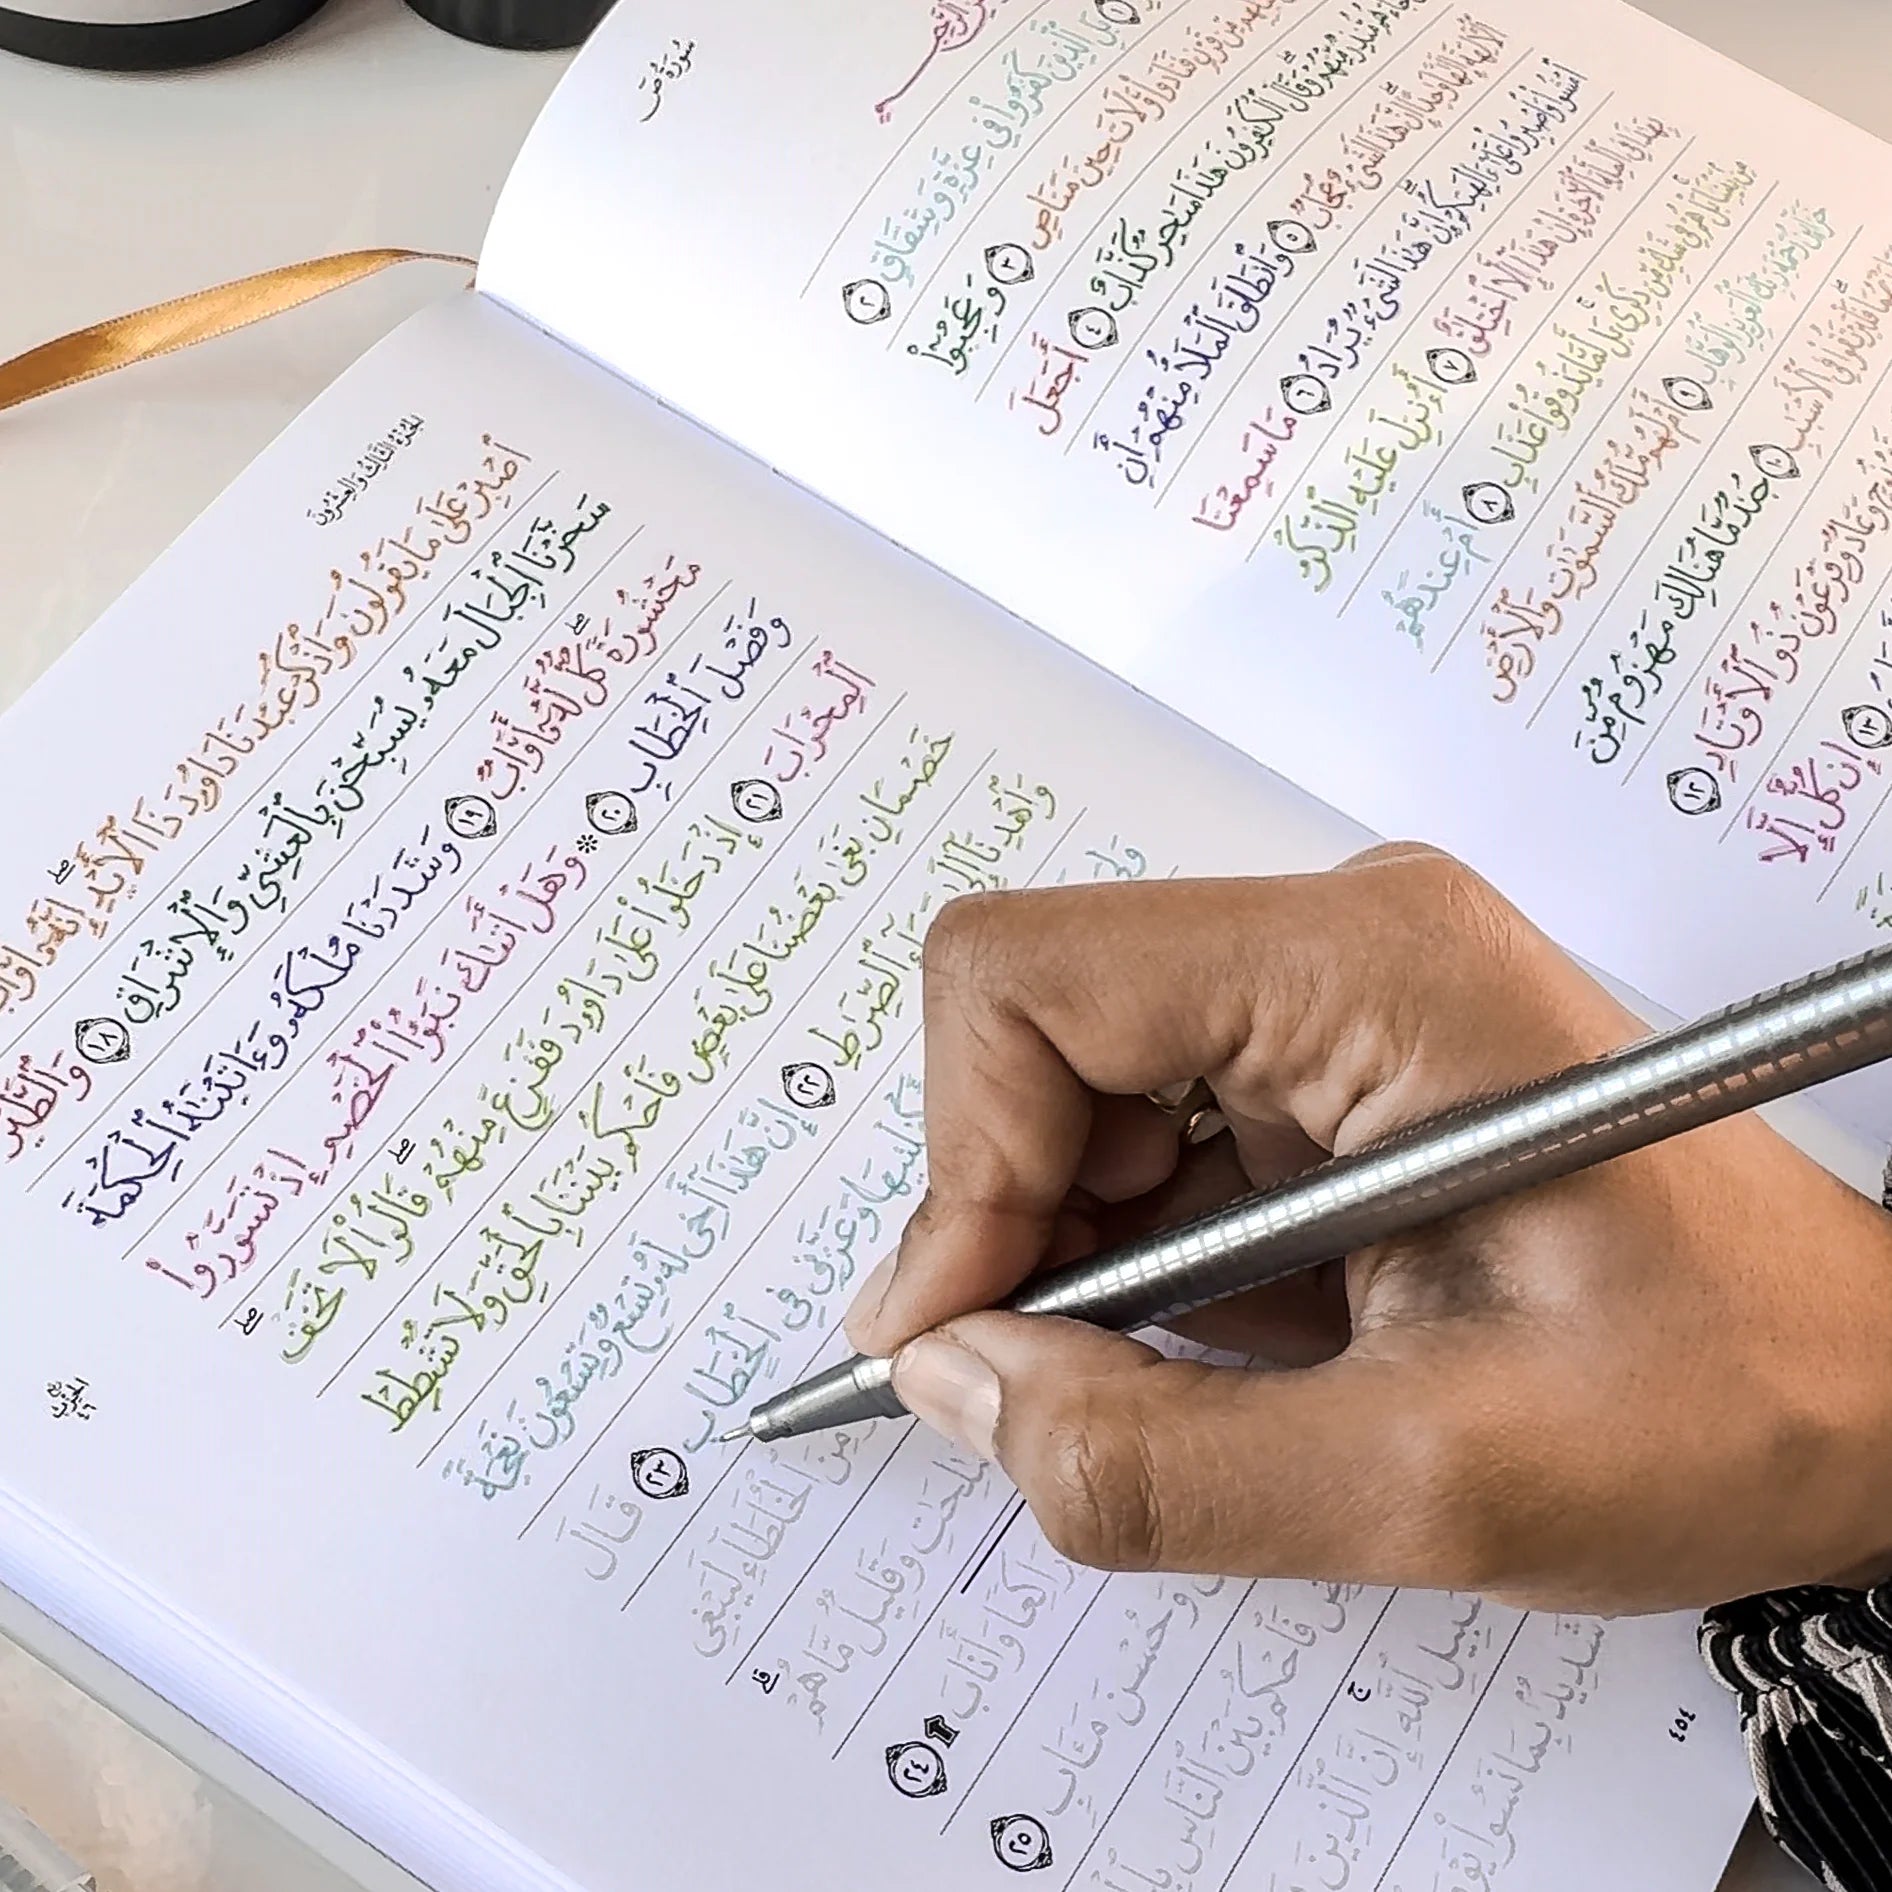 سُورَةُ صٓ
بَلِ ٱلَّذِينَ كَفَرُوا۟ فِى عِزَّةٍ وَشِقَاقٍ ٢
قَرْنٍ فَنَادَوا۟ وَّلَاتَ حِينَ مَنَاصٍ ٣ وَعَجِبُوٓا۟
مُّنذِرٌ مِّنْهُمْ وَقَالَ ٱلْكَٰفِرُونَ هَٰذَا سَٰحِرٌ كَذَّابٌ ٤ أَجَعَلَ
ٱلْءَالِهَةَ إِلَٰهًا وَٰحِدًا إِنَّ هَٰذَا لَشَىْءٌ عُجَابٌ ٥ وَٱنطَلَقَ ٱلْمَلَأُ مِنْهُمْ أَنِ
ٱمْشُوا۟ وَٱصْبِرُوا۟ عَلَىٰٓ ءَالِهَتِكُمْ إِنَّ هَٰذَا لَشَىْءٌ يُرَادُ ٦ مَا سَمِعْنَا
بِهَٰذَا فِى ٱلْمِلَّةِ ٱلْءَاخِرَةِ إِنْ هَٰذَآ إِلَّا ٱخْتِلَٰقٌ ٧ أَءُنزِلَ عَلَيْهِ ٱلذِّكْرُ
مِنۢ بَيْنِنَا بَلْ هُمْ فِى شَكٍّ مِّن ذِكْرِى بَل لَّمَّا يَذُوقُوا۟ عَذَابِ ٨ أَمْ عِندَهُمْ
خَزَآئِنُ رَحْمَةِ رَبِّكَ ٱلْعَزِيزِ ٱلْوَهَّابِ ٩ أَمْ لَهُم مُّلْكُ ٱلسَّمَٰوَٰتِ وَٱلْأَرْضِ
فَلْيَرْتَقُوا۟ فِى ٱلْأَسْبَٰبِ ١٠ جُندٌ مَّا هُنَالِكَ مَهْزُومٌ مِّنَ
نُوحٍ وَعَادٌ وَفِرْعَوْنُ ذُو ٱلْأَوْتَادِ ١٢
١٣ إِن كُلٌّ إِلَّا
ٱلْجُزْءُ ٱلثَّالِثُ وَٱلْعِشْرُونَ
ٱصْبِرْ عَلَىٰ مَا يَقُولُونَ وَٱذْكُرْ عَبْدَنَا دَاوُۥدَ ذَا ٱلْأَيْدِ ۖ إِنَّهُۥٓ أَوَّابٌ
سَخَّرْنَا ٱلْجِبَالَ مَعَهُۥ يُسَبِّحْنَ بِٱلْعَشِىِّ وَٱلْإِشْرَاقِ ١٨ وَٱلطَّيْرَ
مَحْشُورَةً ۖ كُلٌّ لَّهُۥٓ أَوَّابٌ ١٩ وَشَدَدْنَا مُلْكَهُۥ وَءَاتَيْنَٰهُ ٱلْحِكْمَةَ
وَفَصْلَ ٱلْخِطَابِ ٢٠ ۞ وَهَلْ أَتَىٰكَ نَبَؤُا۟ ٱلْخَصْمِ إِذْ تَسَوَّرُوا۟
ٱلْمِحْرَابَ ٢١ إِذْ دَخَلُوا۟ عَلَىٰ دَاوُۥدَ فَفَزِعَ مِنْهُمْ ۖ قَالُوا۟ لَا تَخَفْ ۖ
خَصْمَانِ بَغَىٰ بَعْضُنَا عَلَىٰ بَعْضٍ فَٱحْكُم بَيْنَنَا بِٱلْحَقِّ وَلَا تُشْطِطْ
وَٱهْدِنَآ إِلَىٰ سَوَآءِ ٱلصِّرَٰطِ ٢٢ إِنَّ هَٰذَآ أَخِى لَهُۥ تِسْعٌ وَتِسْعُونَ نَعْجَةً
وَلِىَ أَكْفِلْنِيهَا وَعَزَّنِى فِى ٱلْخِطَابِ ٢٣ قَالَ
مِّنَ ٱلْخُلَطَآءِ لَيَبْغِى
وَقَلِيلٌ مَّا هُمْ ۗ
رَاكِعًا وَأَنَابَ ٢٤
وَحُسْنَ مَـَٔابٍ ٢٥
فَٱحْكُم بَيْنَ ٱلنَّاسِ
سَبِيلِ ٱللَّهِ ۚ إِنَّ ٱلَّذِينَ
شَدِيدٌۢ بِمَا نَسُوا۟
الحزب ٤٦
٤٥٤